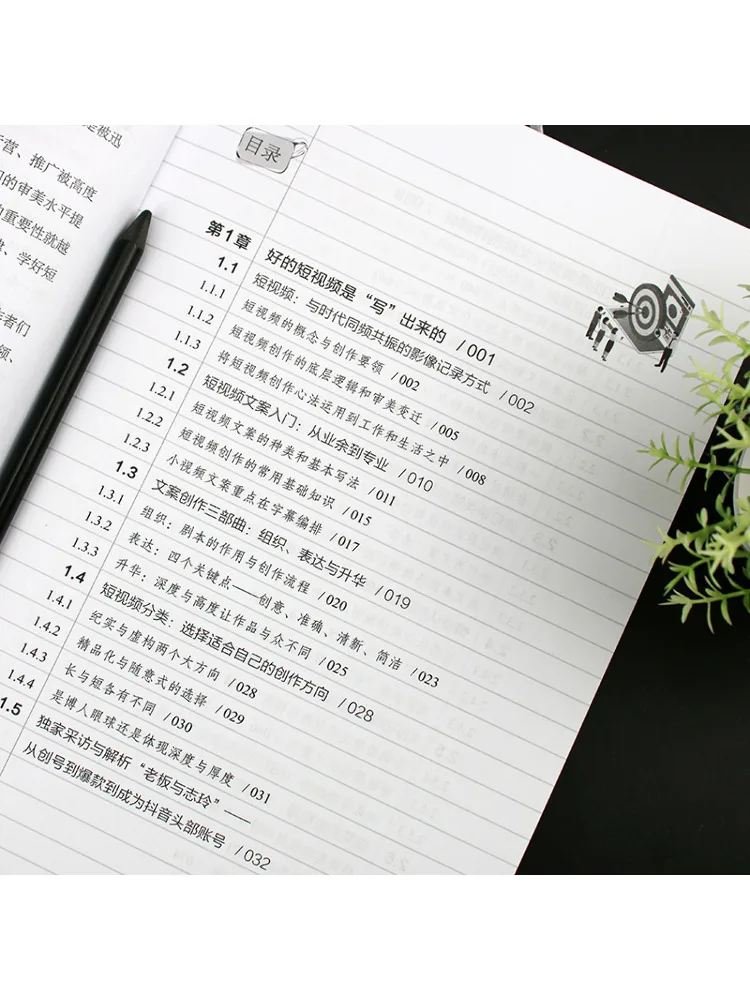 是被迅
营、推广被高度
们的审美水平提
重要性就越
、学好短
者们
领、
目录
第1章 好的短视频是“写”出来的 /001
1.1 短视频：与时代同频共振的影像记录方式 /002
1.1.1 短视频的概念与创作要领 /002
1.1.2 短视频创作的底层逻辑和审美变迁 /005
1.1.3 将短视频创作心法运用到工作和生活之中 /008
1.2 短视频文案入门：从业余到专业 /010
1.2.1 短视频文案的种类和基本写法 /011
1.2.2 短视频创作的常用基础知识 /015
1.2.3 小视频文案重点在字幕编排 /017
1.3 文案创作三部曲：组织、表达与升华 /019
1.3.1 组织：剧本的作用与创作流程 /020
1.3.2 表达：四个关键点——创意、准确、清新、简洁 /023
1.3.3 升华：深度与高度让作品与众不同 /025
1.4 短视频分类：选择适合自己的创作方向 /028
1.4.1 纪实与虚构两个大方向 /028
1.4.2 精品化与随意式的选择 /029
1.4.3 长与短各有不同 /030
1.4.4 是博人眼球还是体现深度与厚度 /031
1.5 独家采访与解析“老板与志玲”——
从创号到爆款到成为抖音头部账号 /032